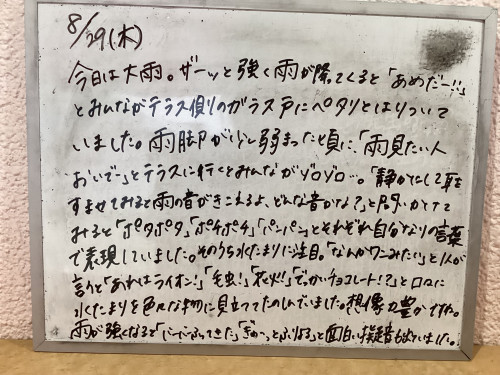 8/29(木)
今日は大雨。ザーッと強く雨が降ってくると「あめだー!!」
とみんながテラス側のガラス戸にペタリとはりついて
いました。雨脚が少し弱まった頃に、「雨見たい人
おいでー」とテラスに行くとみんながゾロゾロ…。「静かにして耳を
すませてみると雨の音がきこえるよ、どんな音かな?」と問いかけて
みると「ポタポタ」「ポチポチ」「パンパン」とそれぞれ自分なりの言葉
で表現していました。そのうち水たまりに注目。「なんかワニみたい」と1人が
言うと「あれはライオン!」「毛虫!」「花火!」「でっかいチョコレート!?」と口々に
水たまりを色々な物に見立ててたのしんでいました。想像力豊かですね。
雨が強くなると「じーじーふってきた」「ぎゅっとふりる」と面白い擬音も出ていました。